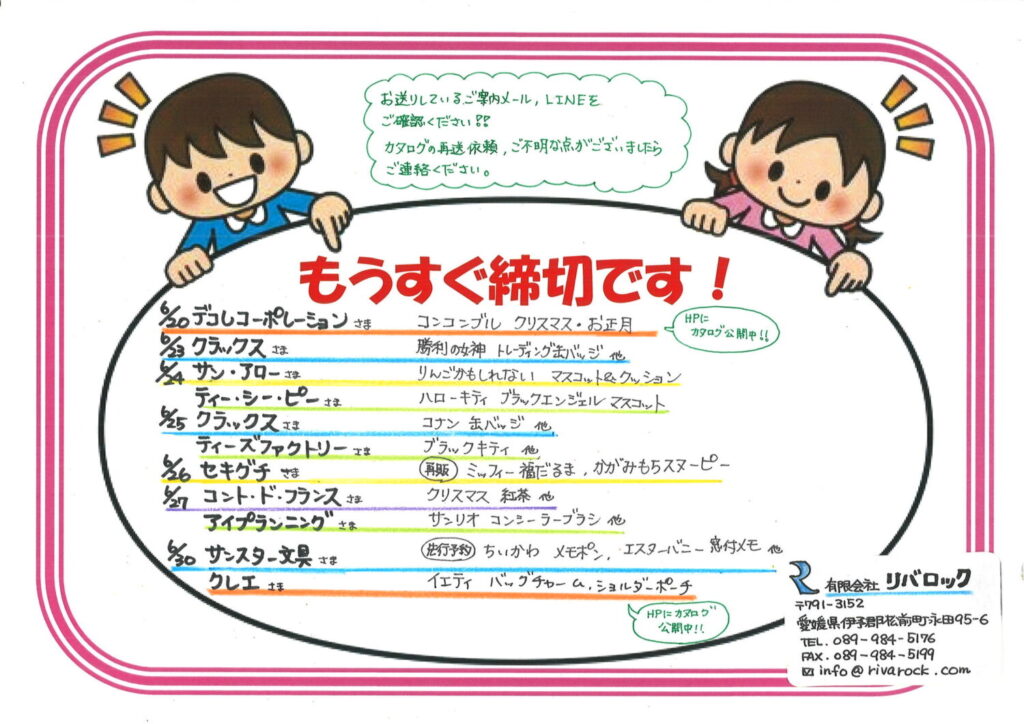 お送りしているご案内メール,LINEを
ご確認ください!!
カタログの再送依頼,ご不明な点がございましたら
ご連絡ください。
もうすぐ締切です!
6/20 デコレコーポレーション さま コンコンブル クリスマス・お正月
HPに
カタログ公開中!!
6/23 クラックス さま 勝利の女神 トレーディング缶バッジ 他
6/24 サン・アロー さま りんごかもしれない マスコット&クッション
ティー・シー・ピー さま ハローキティ ブラックエンジェル マスコット
6/25 クラックス さま コナン 缶バッジ 他
ティーズファクトリー さま ブラックキティ 他
6/26 セキグチ さま 再販 ミッフィー福だるま,かがみもちスヌーピー
6/27 コント・ド・フランス さま クリスマス 紅茶 他
アイプランニング さま サンリオ コンシーラーブラシ 他
6/30 サンスター文具 さま 先行予約 ちいかわ メモポン,エスターバニー 窓付メモ 他
クレエ さま イエティ バッグチャーム,ショルダーポーチ
HPにカタログ
公開中!!
有限会社 リバロック
〒791-3152
愛媛県伊予郡松前町永田95-6
TEL.089-984-5176
FAX.089-984-5199
✉info@rivarock.com